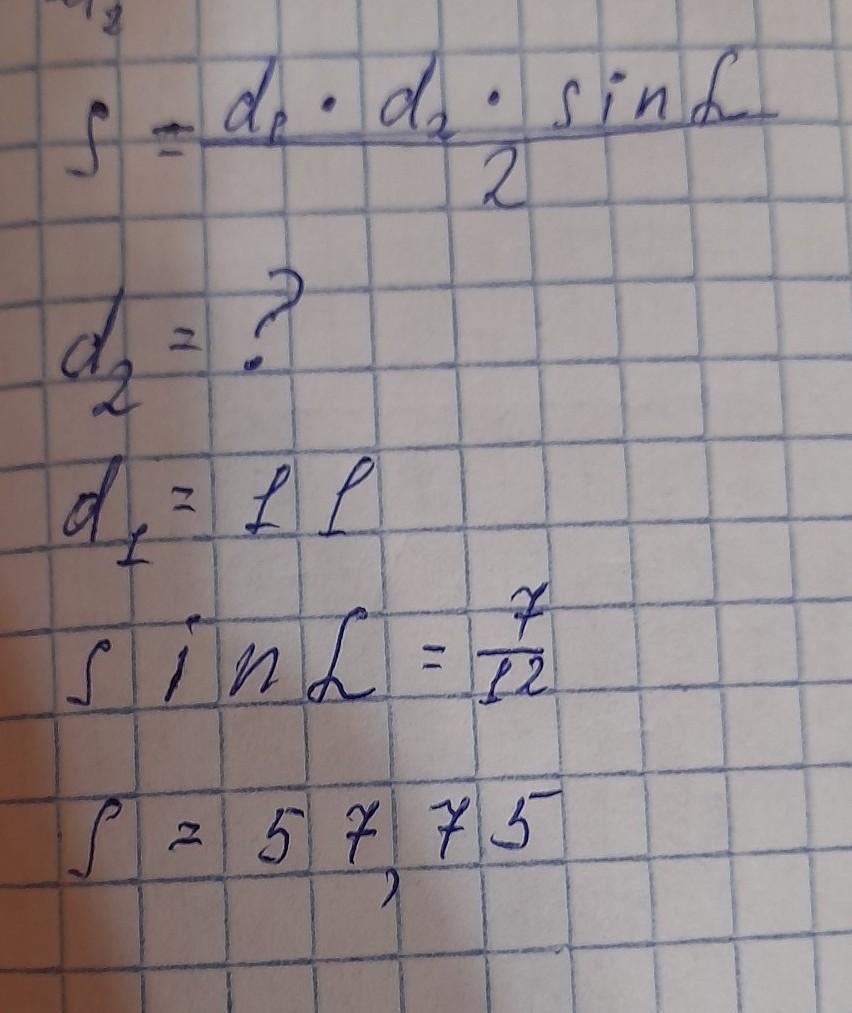 S = d₁ · d₂ · sin α
2
d₂ = ?
d₁ = 11
sin α = 7/12
S = 57,75